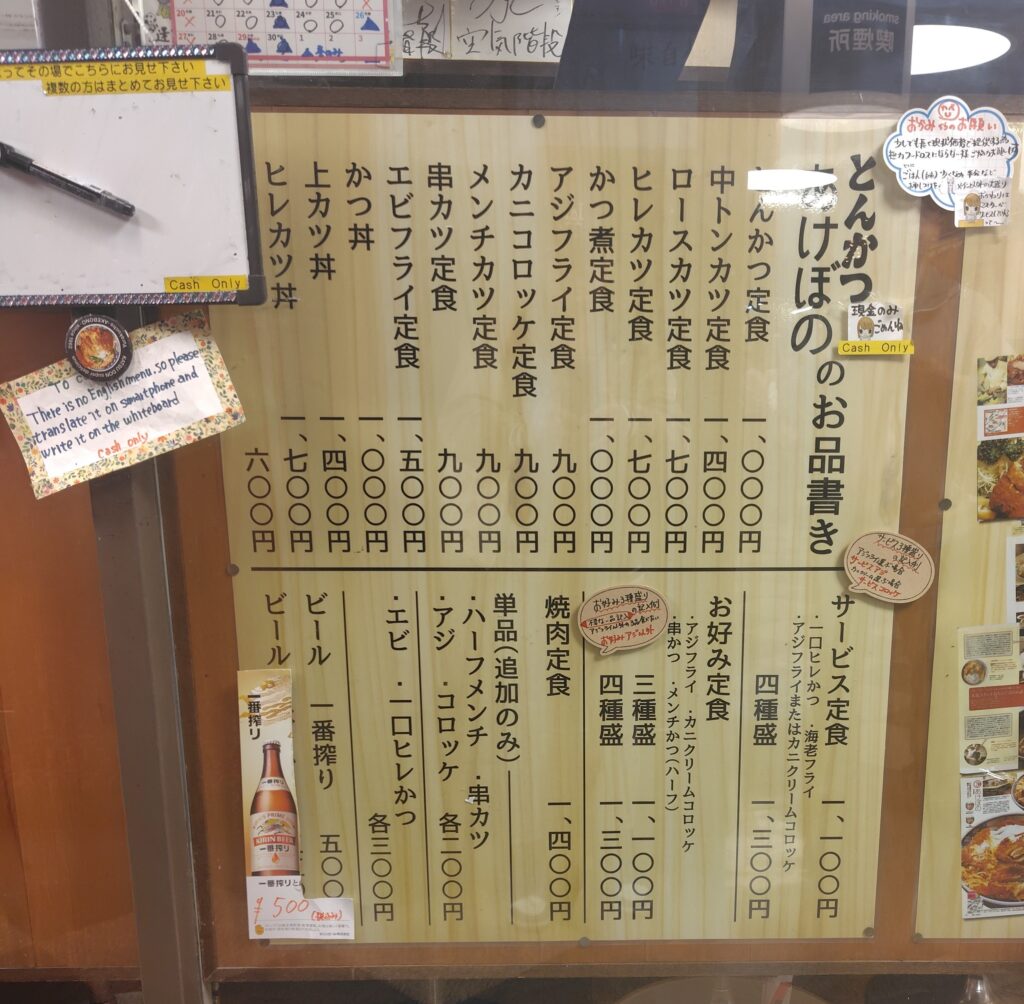 smoking area
喫煙所
空気階段
ってその場でこちらにお見せ下さい
複数の方はまとめてお見せ下さい
Cash Only
There is no English menu, so please
translate it on smartphone and
write it on the whiteboard
Cash only
とんかつ
けぼのの お品書き
現金のみ
ごめんね
Cash Only
んかつ定食 一、〇〇〇円
中トンカツ定食 一、四〇〇円
ロースカツ定食 一、七〇〇円
ヒレカツ定食 一、七〇〇円
かつ煮定食 一、〇〇〇円
アジフライ定食 九〇〇円
カニコロッケ定食 九〇〇円
メンチカツ定食 九〇〇円
串カツ定食 九〇〇円
エビフライ定食 一、五〇〇円
かつ丼 一、〇〇〇円
上カツ丼 一、四〇〇円
ヒレカツ丼 一、七〇〇円
六〇〇円
サービス定食 一、一〇〇円
・一口ヒレかつ ・海老フライ
・アジフライまたはカニクリームコロッケ
四種盛 一、三〇〇円
お好み定食
・アジフライ ・カニクリームコロッケ
・串かつ ・メンチかつ(ハーフ)
三種盛 一、一〇〇円
四種盛 一、三〇〇円
焼肉定食 一、四〇〇円
単品(追加のみ)
・ハーフメンチ ・串カツ
・アジ ・コロッケ 各二〇〇円
・エビ ・一口ヒレかつ 各三〇〇円
ビール 一番搾り 五〇〇
ビール
一番搾り
KIRIN BEER
一番搾り
¥500
(税込み)
おかみからのお願い
サービス3種盛り
の記入例
アジフライ選ぶ場合
サービスアジ
サービスコロッケ
お好み3種盛り
の記入例
お好みアジ以外